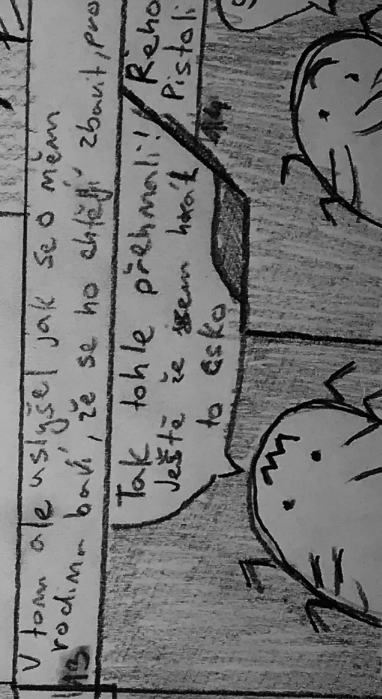 V tom ale uslyšel jak se o něm
rodinn baví, že se ho chtějí zbavit, pro
13
Tak tohle přehnali!
Ještě že jsem hrál
to esko
14
Řeho
Pistoli